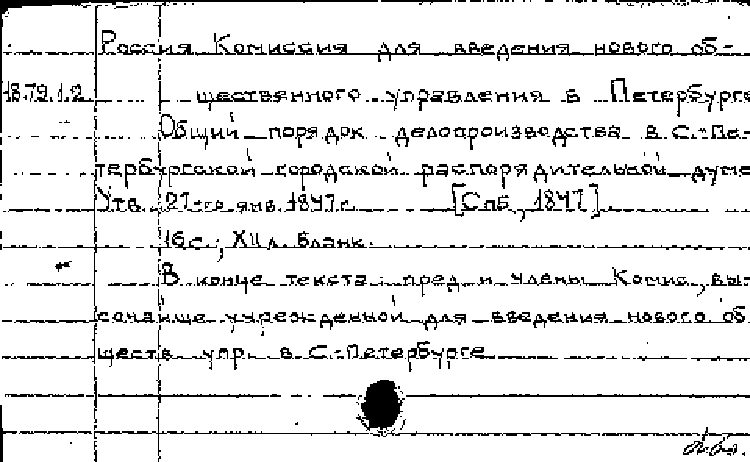 Россия Комиссия для введения нового об-
18.79.1.2 щественного управления в Петербурге
Общий порядок делопроизводства в С.-Пе-
тербургской городской распорядительной думе
Утв. 27-го янв. 1847 г. [Спб., 1847].
16 с.; XII л. бланк.
В конце текста: пред. и члены Комис., выс-
сочайше учрежденной для введения нового об-
ществ. упр. в С.-Петербурге